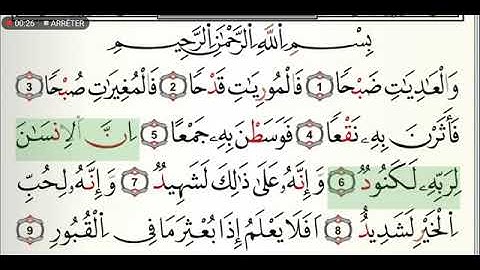 00:26 ARRÊTER
بِسْمِ اللَّهِ الرَّحْمَٰنِ الرَّحِيمِ
وَالْعَادِيَاتِ ضَبْحًا 1 فَالْمُورِيَاتِ قَدْحًا 2 فَالْمُغِيرَاتِ صُبْحًا 3
فَأَثَرْنَ بِهِ نَقْعًا 4 فَوَسَطْنَ بِهِ جَمْعًا 5 اِنَّ الْاِنْسَانَ
لِرَبِّهِ لَكَنُودٌ 6 وَاِنَّهُ عَلَىٰ ذَالِكَ لَشَهِيدٌ 7 وَاِنَّهُ لِحُبِّ
الْخَيْرِ لَشَدِيدٌ 8 اَفَلَا يَعْلَمُ إِذَا بُعْثِرَ مَا فِي الْقُبُورِ 9